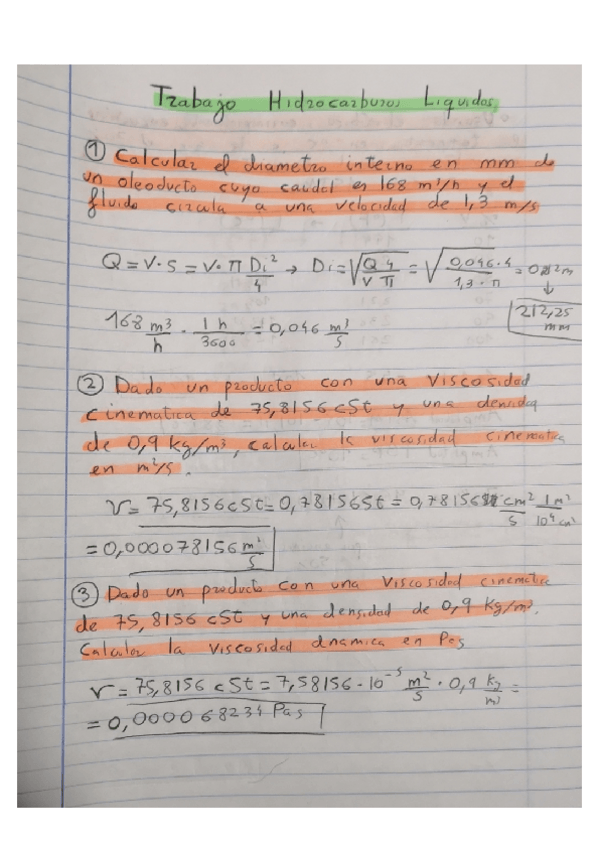 Trabajo Hidrocarburos Liquidos
① Calcular el diametro interno en mm de
un oleoducto cuyo caudal es 168 m³/h y el
fluido circula a una velocidad de 1,3 m/s
Q = V · S = V · π Di²/4 → Di = √(Q 4 / V π) = √(0,046 · 4 / 1,3 · π) = 0,212 m
↓
212,25 mm
168 m³/h · 1h/3600 = 0,046 m³/s
② Dado un producto con una Viscosidad
cinematica de 75,8156 cSt y una densidad
de 0,9 kg/m³, calcular la viscosidad cinematica
en m²/s.
V = 75,8156 cSt = 0,78156 St = 0,78156 cm²/s 1m²/10⁴ cm²
= 0,000078156 m²/s
③ Dado un producto con una Viscosidad cinematica
de 75,8156 cSt y una densidad de 0,9 Kg/m³.
Calcular la viscosidad dnamica en Pas
V = 75,8156 cSt = 7,58156 · 10⁻⁵ m²/s · 0,9 kg/m³ =
= 0,000068234 Pas